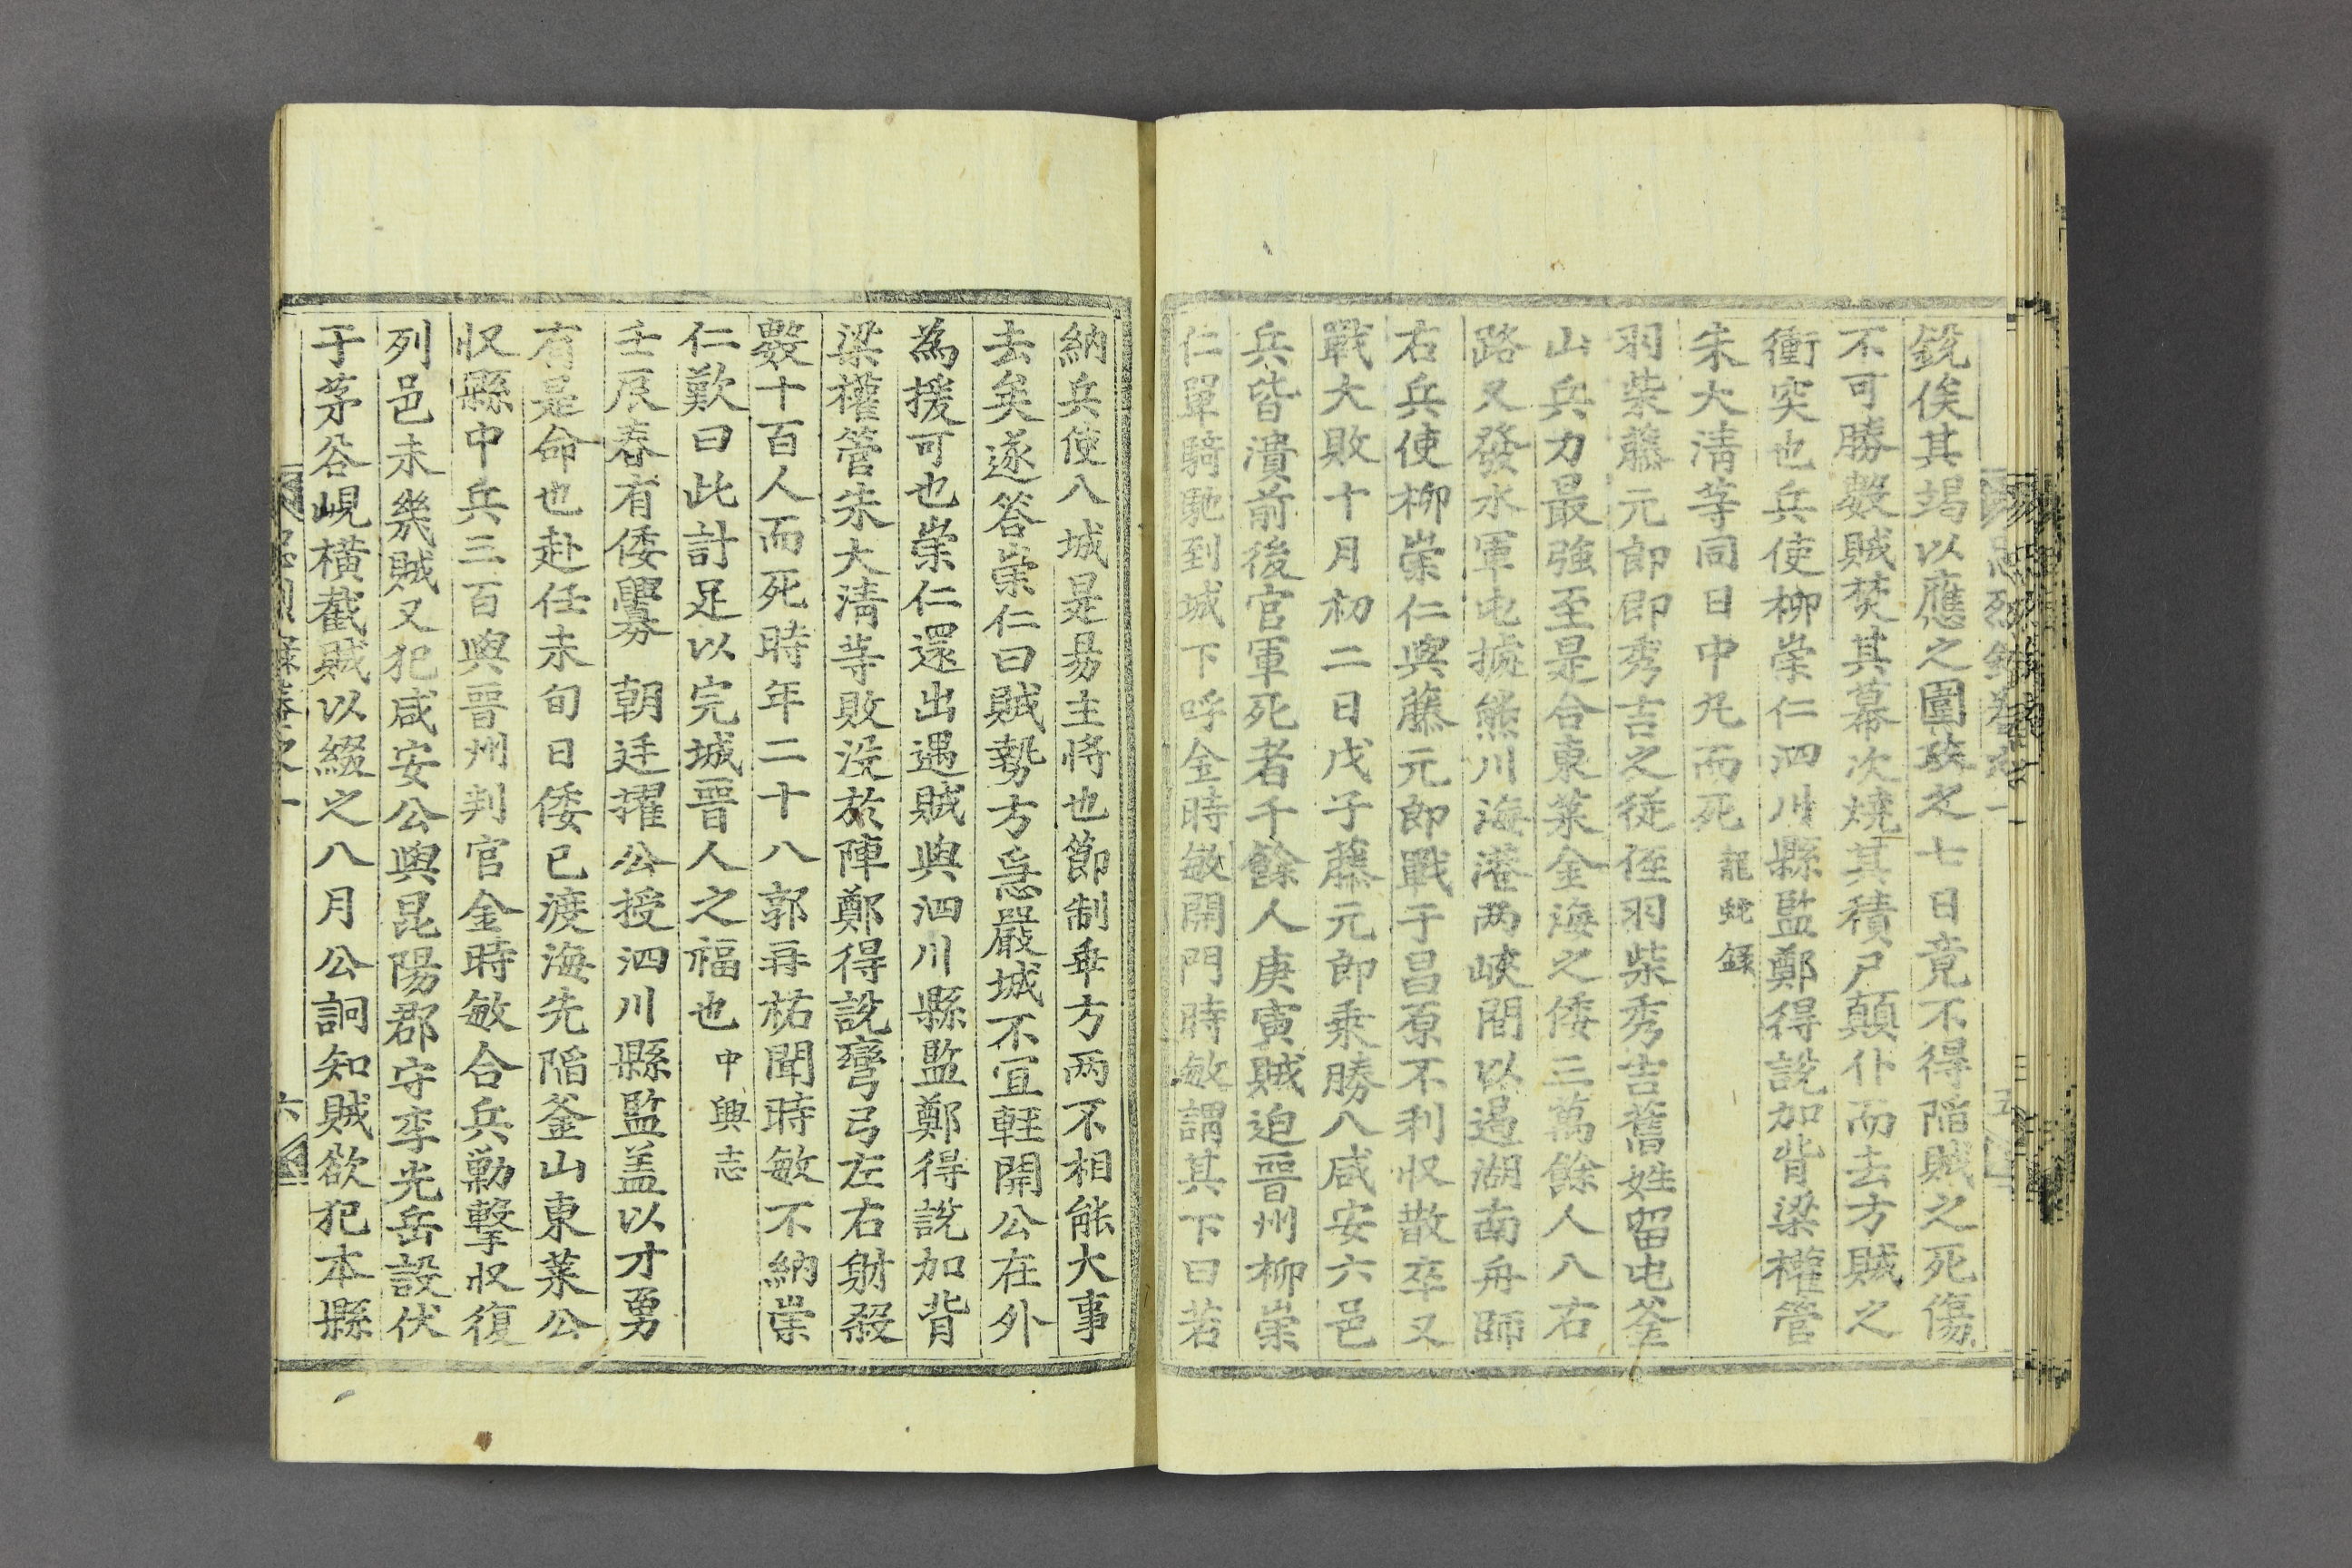 銳俟其竭以應之圍城之七日竟不得陷賊之死傷
不可勝數賊焚其幕次燒其積尸顚仆而去方賊之
衝突也兵使柳崇仁泗川縣監鄭得說加背梁權管
朱大淸等同日中丸而死 龍蛇錄
羽柴藤元郎卽秀吉之從侄羽柴秀吉舊姓留屯釜
山兵力最強至是合東萊金海之倭三萬餘人入右
路又發水軍屯據熊川海港两峽間以遏湖南舟師
右兵使柳崇仁與藤元郎戰于昌原不利收散卒又
戰大敗十月初二日戊子藤元郎乗勝入咸安六邑
兵皆潰前後官軍死者千餘人庚寅賊迫晋州柳崇
仁單騎馳到城下呼金時敏開門時敏謂其下曰若
納兵使入城是易主將也節制乖方两不相能大事
去矣遂答崇仁曰賊勢方急嚴城不宜輕開公在外
爲援可也崇仁還出遇賊與泗川縣監鄭得說加背
梁權管朱大淸等敗沒於陣鄭得說彎弓左右射殺
數十百人而死時年二十八郭再祐聞時敏不納崇
仁歎曰此計足以完城晋人之福也 中興志
壬辰春有倭釁 朝廷擢公授泗川縣監盖以才勇
有是命也赴任未旬日倭已渡海先陷釜山東萊公
收縣中兵三百與晋州判官金時敏合兵勦擊收復
列邑未幾賊又犯咸安公與昆陽郡守李光岳設伏
于茅谷峴橫截賊以綴之八月公詗知賊欲犯本縣